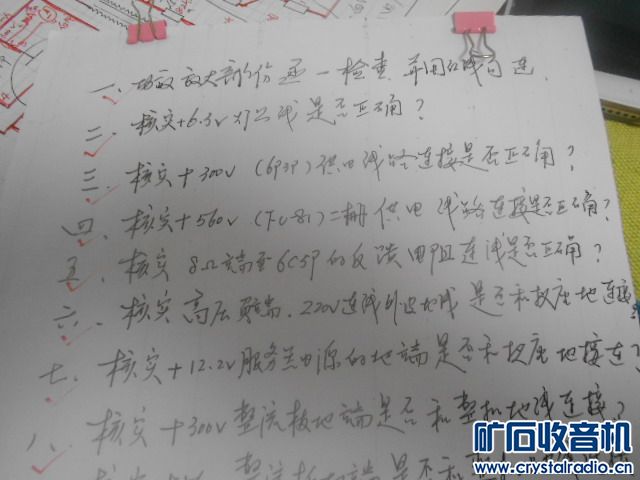 一、功放放大部份逐一检查，并用红线勾连.
二、核实+6.3V灯丝线是否正确？
三、核实+300V（6P3P）供电线路连接是否正确？
四、核实+560V（FU-81）二栅供电线路连接是否正确？
五、核实8Ω端至6C5P的反馈电阻连线是否正确？
六、核实高压负端、220V连线外皮地线是否和机座地连接？
七、核实+12.2V服务器电源的地端是否和机座地接连？
八、核实+300V整流板地端是否和整机地线连接？
核实 整流板地端是否和整
矿石收音机
www.crystalradio.cn